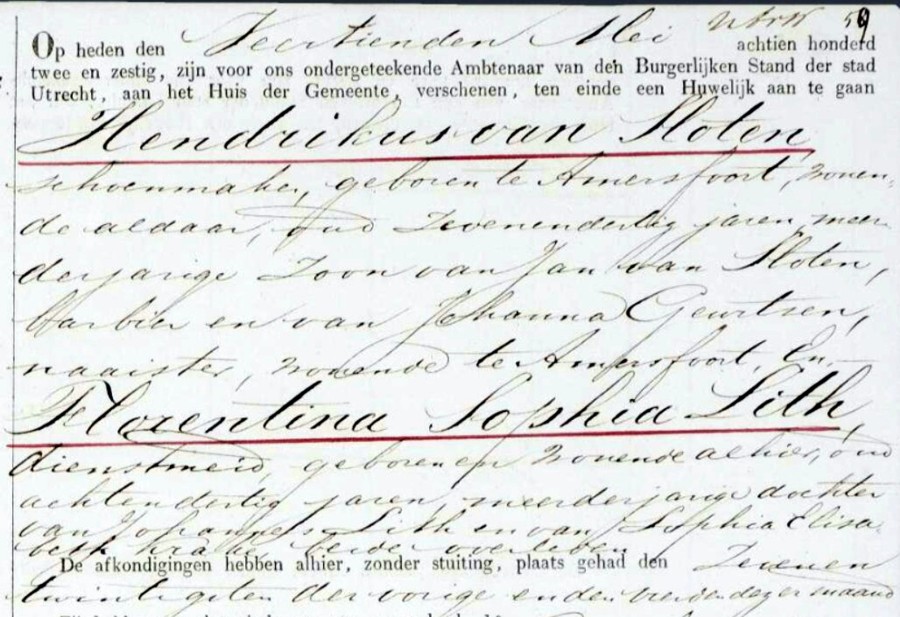 59
Op heden den Veertienden Mei achtien honderd
twee en zestig, zijn voor ons ondergeteekende Ambtenaar van den Burgerlijken Stand der stad
Utrecht, aan het Huis der Gemeente, verschenen, ten einde een Huwelijk aan te gaan
Hendrikus van Sloten,
schoenmaker, geboren te Amersfoort, wonen-
de aldaar, oud zevenendertig jaren, meer-
derjarige zoon van Jan van Sloten,
barbier en van Johanna Geurtsen,
naaister, wonende te Amersfoort, En
Florentina Sophia Lith,
dienstmeid, geboren en wonende alhier, oud
achtendertig jaren, meerderjarige dochter
van Johannes Lith en van Sophia Elisa-
beth beide overleden.
De afkondigingen hebben alhier, zonder stuiting, plaats gehad den Zevenen
twintigsten der vorige en den vierden dezer maand